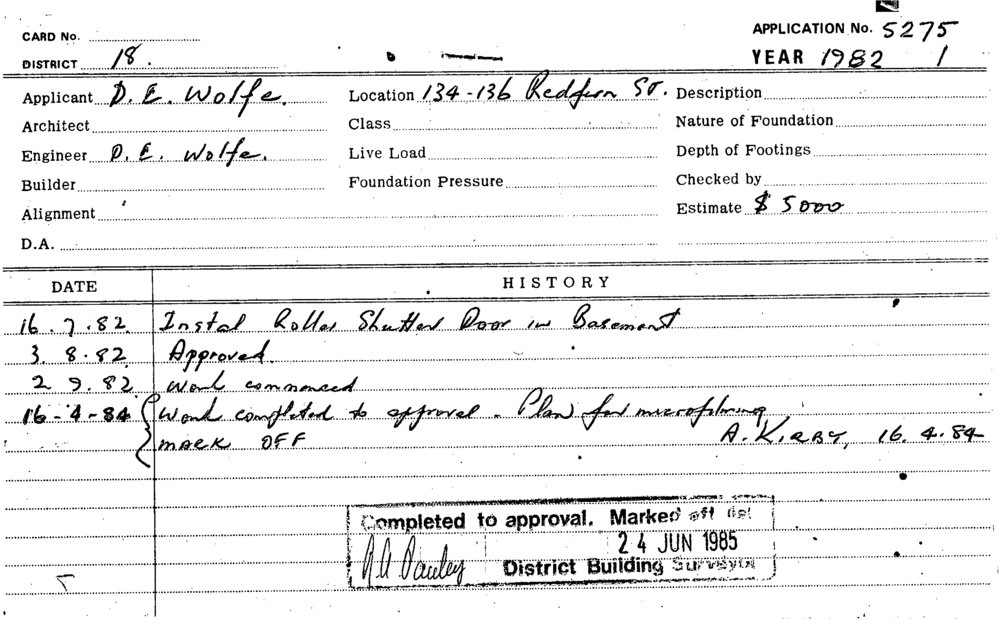 CARD No.
APPLICATION No. 5275
DISTRICT 18.
YEAR 1982 1
Applicant D. E. Wolfe. Location 134-136 Redfern ST. Description
Architect Class Nature of Foundation
Engineer D. E. Wolfe. Live Load Depth of Footings
Builder Foundation Pressure Checked by
Alignment Estimate $ 5000
D.A.
DATE HISTORY
16.7.82. Instal Roller Shutter Door in Basement
3. 8.82 Approved.
2 9.82 Work commenced
16-4-84 Work completed to approval. Plan for microfilming
MARK OFF A. KIRBY, 16.4.84
Completed to approval. Marked off list
24 JUN 1985
District Building Surveyor